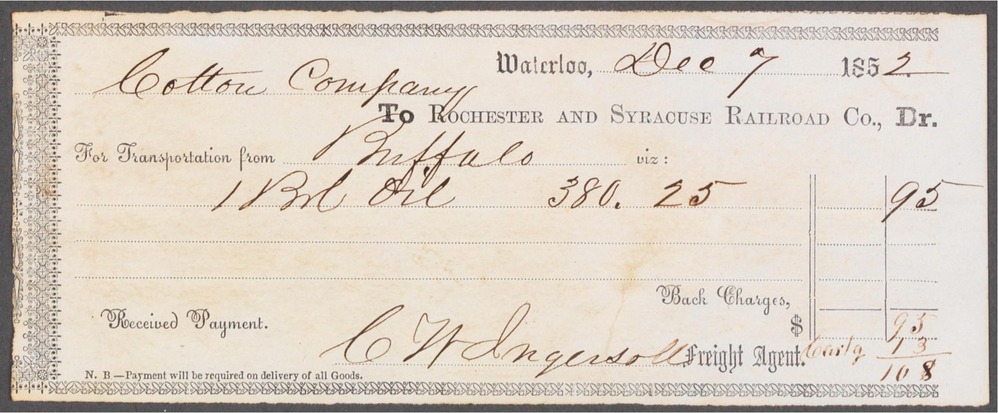 Waterloo, Dec 7 1852
Cotton Company
To Rochester and Syracuse Railroad Co., Dr.
For Transportation from Buffalo viz:
1 Brl Oil 380. 25 95
Back Charges,
Received Payment. $ 95
13
C W Ingersoll Freight Agent. Cartg 108
N. B.—Payment will be required on delivery of all Goods.